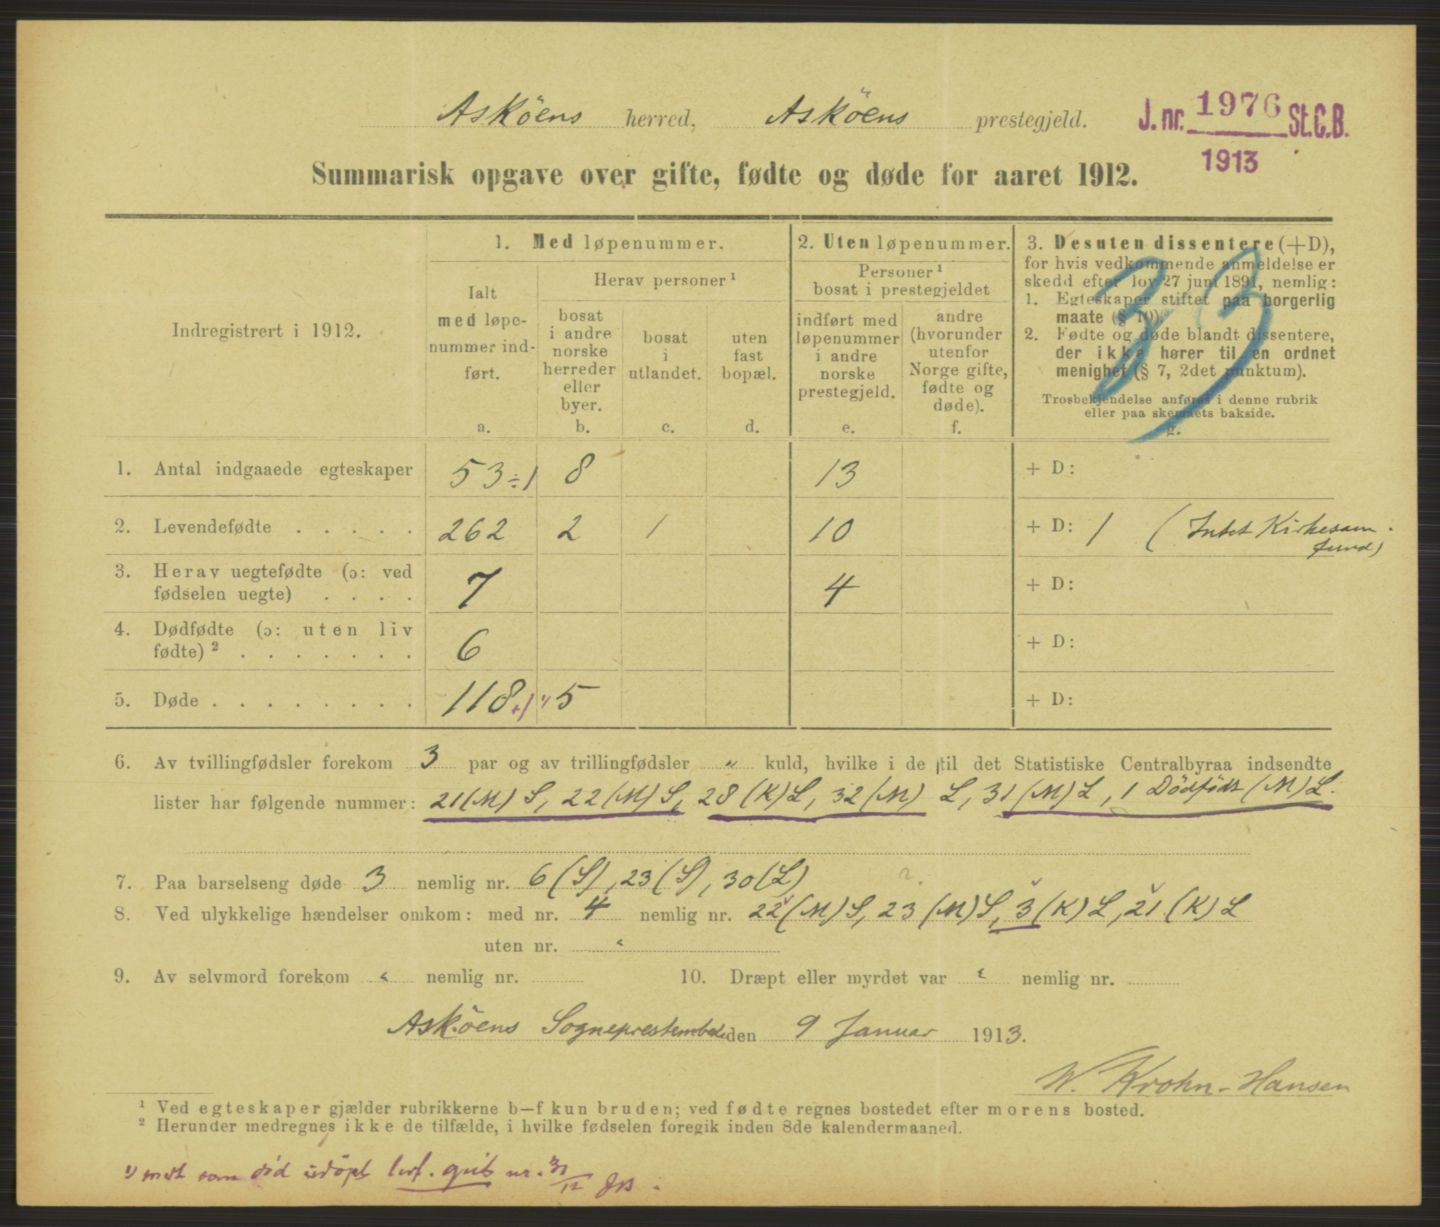 Asköens herred, Asköens prestegjeld.
J. nr. 1976 St. C. B.
1913
Summarisk opgave over gifte, fødte og døde for aaret 1912.
33
Indregistrert i 1912.
1. Med løpenummer.
Ialt
med løpe-
nummer ind-
ført.
a.
Herav personer ¹
bosat
i andre
norske
herreder
eller
byer.
b.
bosat
i
utlandet.
c.
uten
fast
bopæl.
d.
2. Uten løpenummer.
Personer ¹
bosat i prestegjeldet
indført med
løpenummer
i andre
norske
prestegjeld.
e.
andre
(hvorunder
utenfor
Norge gifte,
fødte og
døde).
f.
3. Desuten dissentere (+D),
for hvis vedkommende anmeldelse er
skedd efter lov 27 juni 1891, nemlig:
1. Egteskaper stiftet paa borgerlig
maate (§ 10).
2. Fødte og døde blandt dissentere,
der ikke hører til en ordnet
menighet (§ 7, 2det punktum).
Trosbekjendelse anføres i denne rubrik
eller paa skemaets bakside.
g.
1. Antal indgaaede egteskaper 53 ÷1 8 13 + D:
2. Levendefødte . . . . . 262 2 1 10 + D: 1 (Intet Kirkesam-
fund)
3. Herav uegtefødte (ɔ: ved
fødselen uegte) . . . . 7 4 + D:
4. Dødfødte (ɔ: uten liv
fødte) ² . . . . . . . 6 + D:
5. Døde . . . . . . . . 118 +1 ¹⁾ 5 + D:
6. Av tvillingfødsler forekom 3 par og av trillingfødsler " kuld, hvilke i de til det Statistiske Centralbyraa indsendte
lister har følgende nummer: 21 (M) S, 22 (M) S, 28 (K) L, 32 (M) L, 31 (M) L, 1 Dödfödt (M) L.
7. Paa barselseng døde 3 nemlig nr. 6 (S), 23 (S), 30 (L)
8. Ved ulykkelige hændelser omkom: med nr. 4 nemlig nr. 22 (M) S, 23 (M) S, 3 (K) L, 21 (K) L
uten nr. "
9. Av selvmord forekom " nemlig nr. 10. Dræpt eller myrdet var " nemlig nr.
Asköens Sogneprestembede den 9 Januar 1913.
W. Krohn-Hansen
¹ Ved egteskaper gjælder rubrikkerne b—f kun bruden; ved fødte regnes bostedet efter morens bosted.
² Herunder medregnes ikke de tilfælde, i hvilke fødselen foregik inden 8de kalendermaaned.
¹⁾ som død